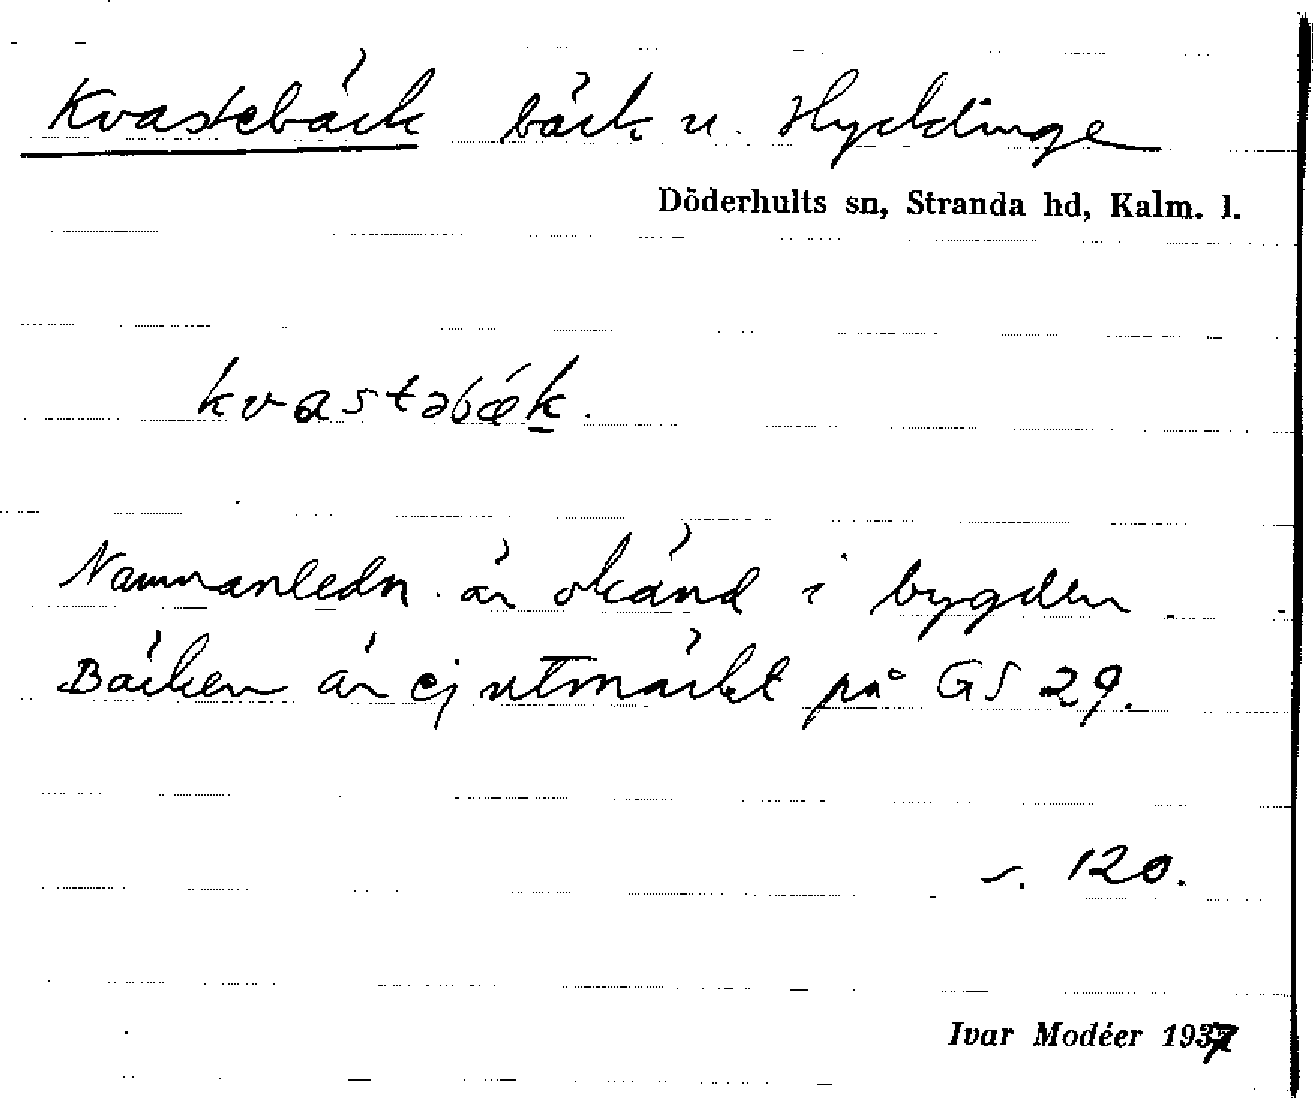 Kvastebäck bäck u. Hycklinge
Döderhults sn, Stranda hd, Kalm. l.
kvastəbæk.
Namnanledn. är okänd i bygden
Bäcken är ej utmärkt på GS 29.
s. 120.
Ivar Modéer 1937